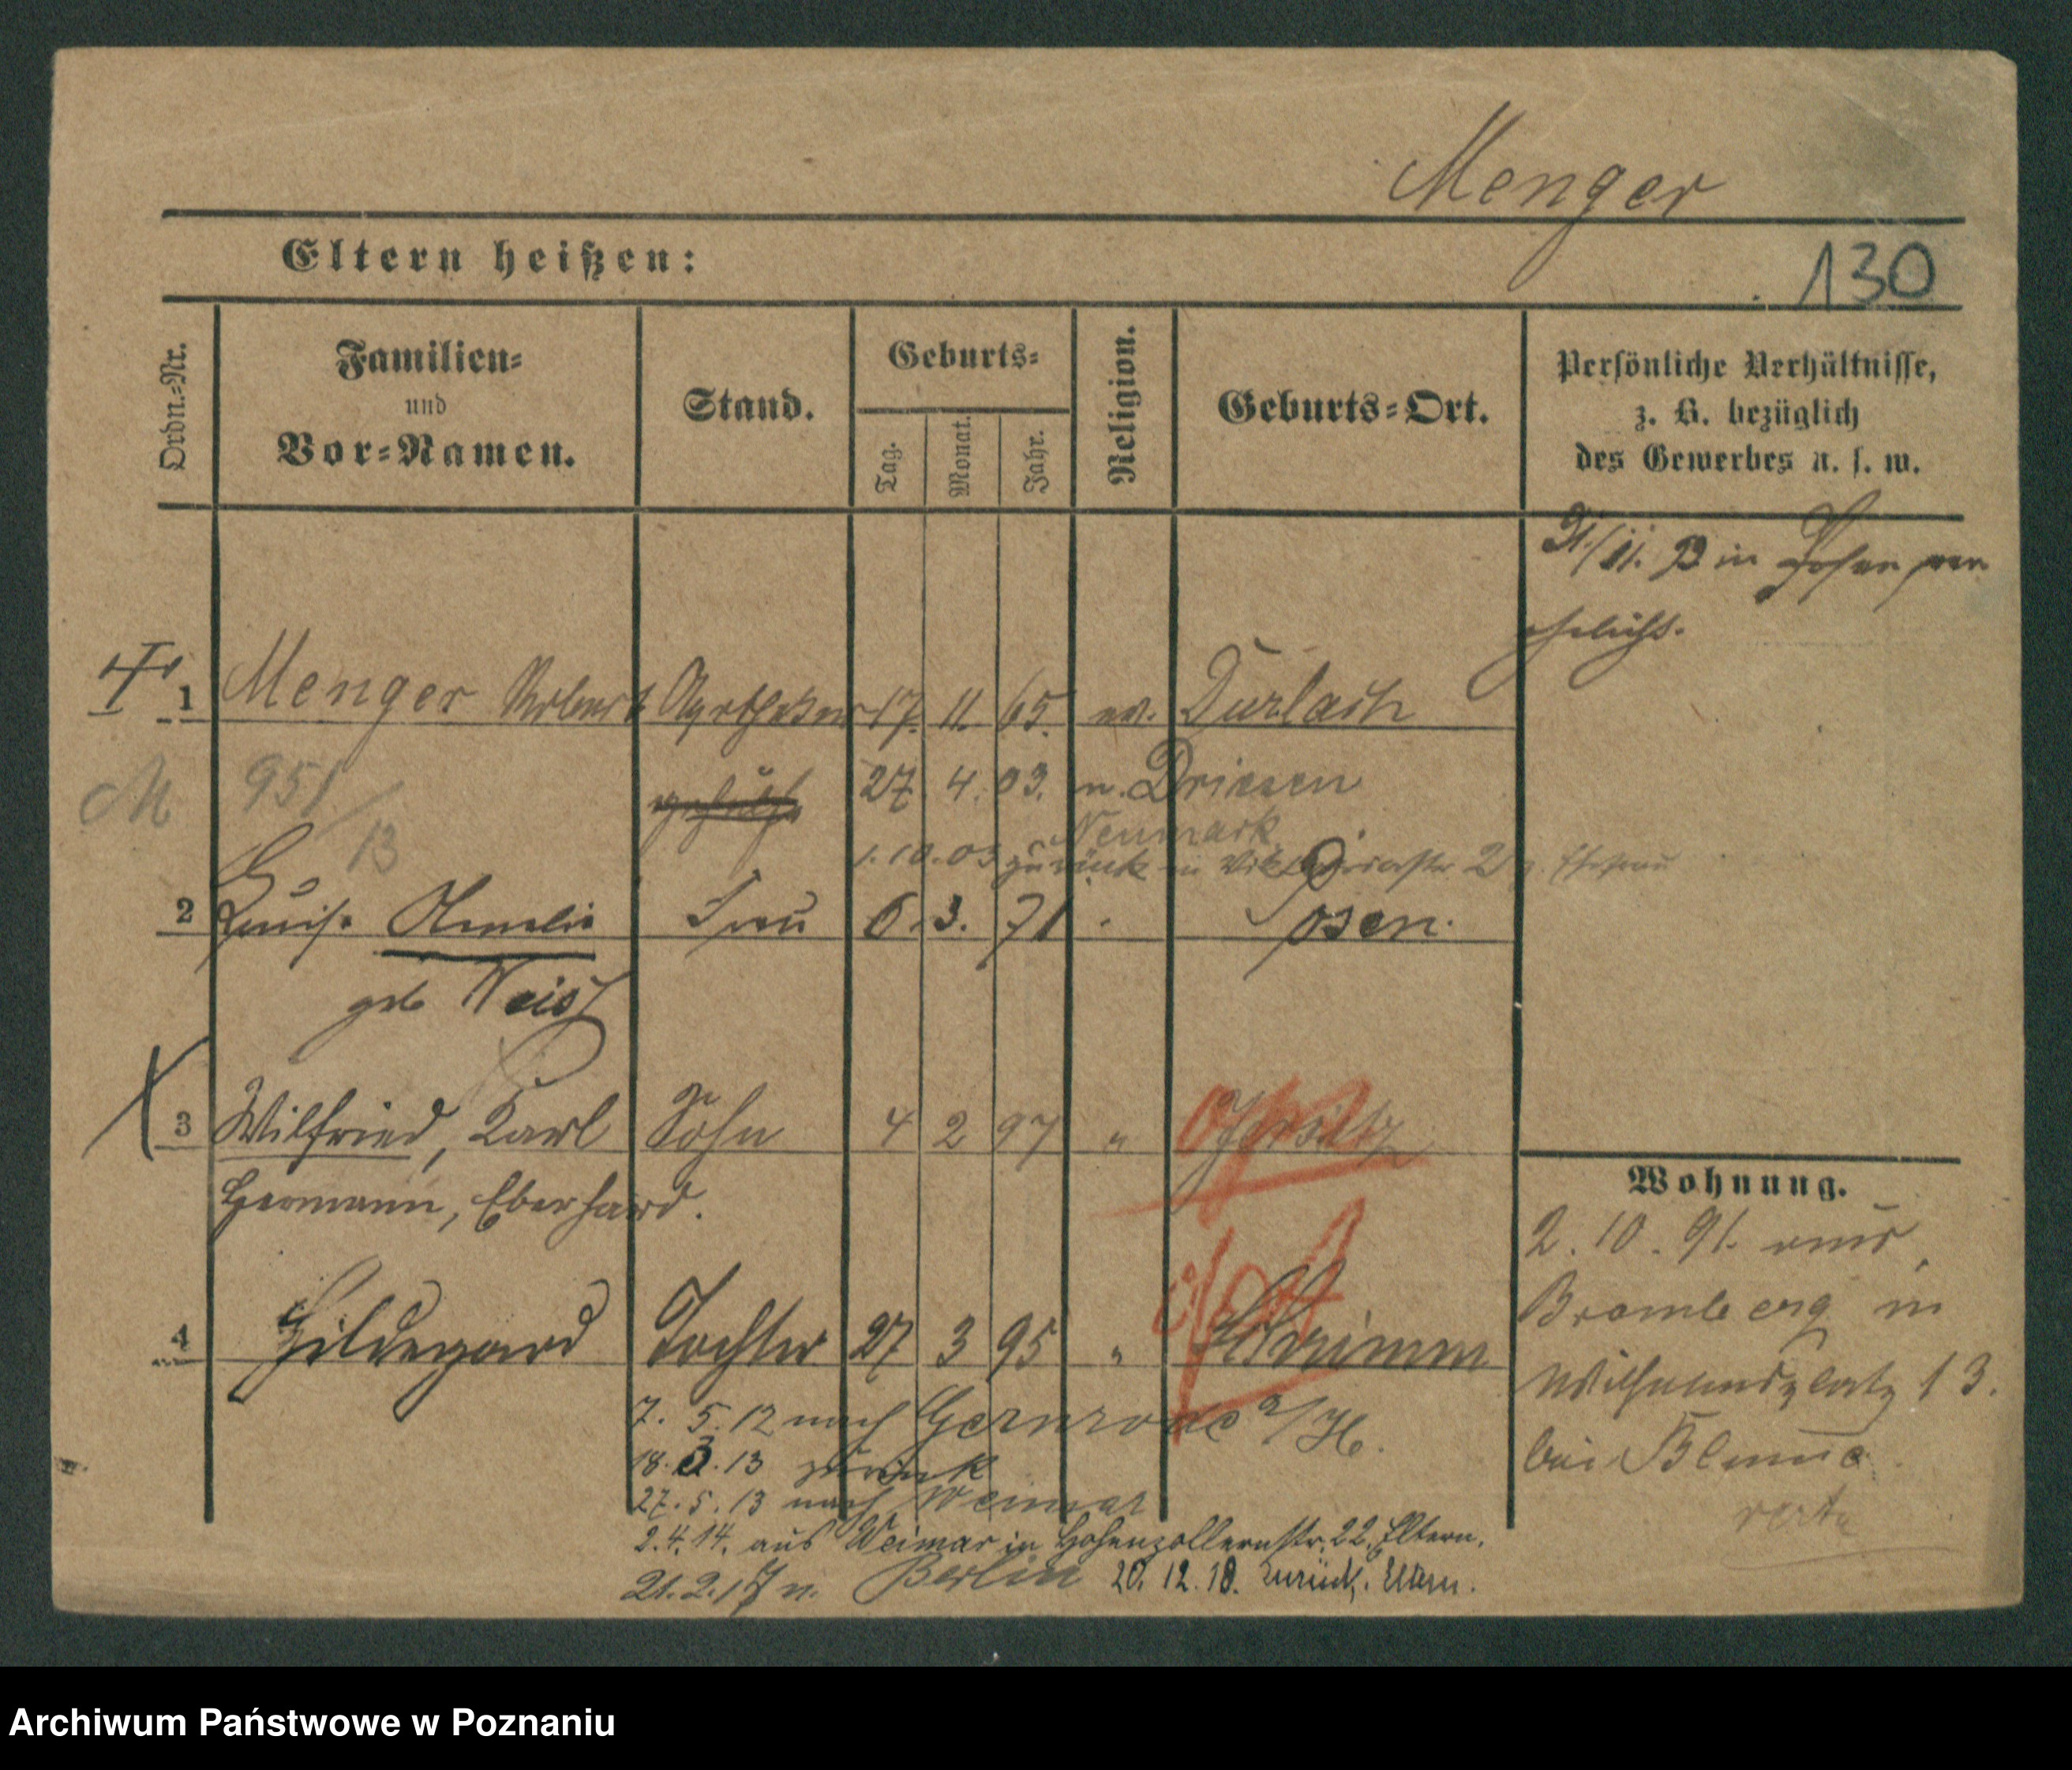 Menger
130
Eltern heißen:
Ordn.-Nr.
Familien-
und
Vor-Namen.
Stand.
Geburts-
Tag.
Monat.
Jahr.
Religion.
Geburts-Ort.
Persönliche Verhältnisse,
z. B. bezüglich
des Gewerbes u. s. w.
in Posen ver
ehelicht.
1 Menger Robert Apotheker 17. 11. 65. ev. Durlach
M 951/13
27 4. 03. n. Driesen
Neumark
1.10.03 zurück in 2 Ehefrau
2 Luise Amalie Frau 6. 3. 71 Posen.
geb Weiss
3 Wilfried, Karl Sohn 4 2 97 " Jersitz
Hermann, Eberhard.
4 Hildegard Tochter 27 3 95 " Schrimm
7. 5. 12 nach Gernrode a/H.
18. 3. 13 zurück
27. 5. 13 nach Weimar
2.4.14. aus Weimar in Hohenzollernstr. 22. Eltern.
21.2.17 n. Berlin 20.12.18. zurück. Eltern.
Wohnung.
2. 10. 91. aus
Bromberg in
Wilhelmsplatz 13.
bei Blume
verte
Archiwum Państwowe w Poznaniu